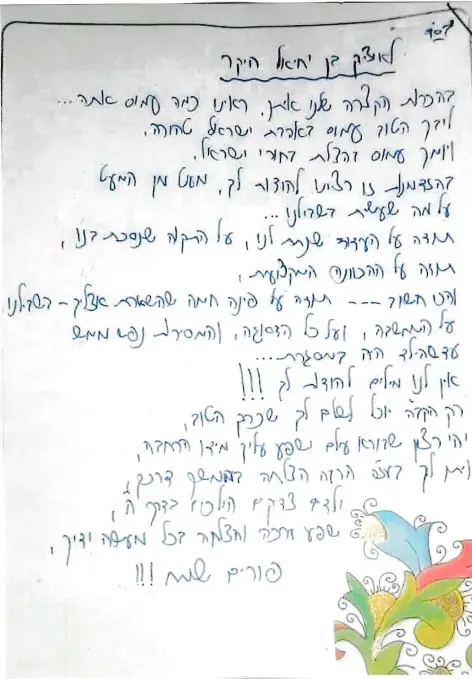 בס"ד
לאיציק בן יחיאל היקר
בהכרות הקצרה שלנו איתך, ראינו כמה עמוס אתה...
ליבך הטוב עמוס באהבת ישראל טהורה.
ויומך עמוס בהצלת בחורי ישראל.
בהזדמנות זו רצינו להודות לך, מעט מן המעט
על מה שעשית בשבילנו...
תודה על העידוד שנתת לנו, על התקוה שנסכת בנו,
תודה על ההכוונה המקצועית,
והכי חשוב --- תודה על פינה חמה שהשארת אצלך - בשבילנו
על המחשבה, ועל כל הדאגה, והמסירות נפש ממש
עד שהילד היה במסגרת...
אין לנו מילים להודות לך !!!
רק הקב"ה יוכל לשלם לך שכרך הטוב,
יהי רצון שבורא עולם ישפע עליך מידו הרחבה,
ויתן לך בע"ה הרבה הצלחה בהמשך דרכך,
ילדים צדיקים הולכים בדרך ה',
שפע ברכה והצלחה בכל מעשה ידיך,
פורים שמח !!!